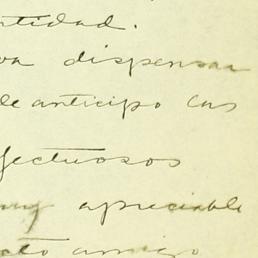 ntidad.
va dispensar
de anticipo las
fectuosos
muy apreciable
cto amigo